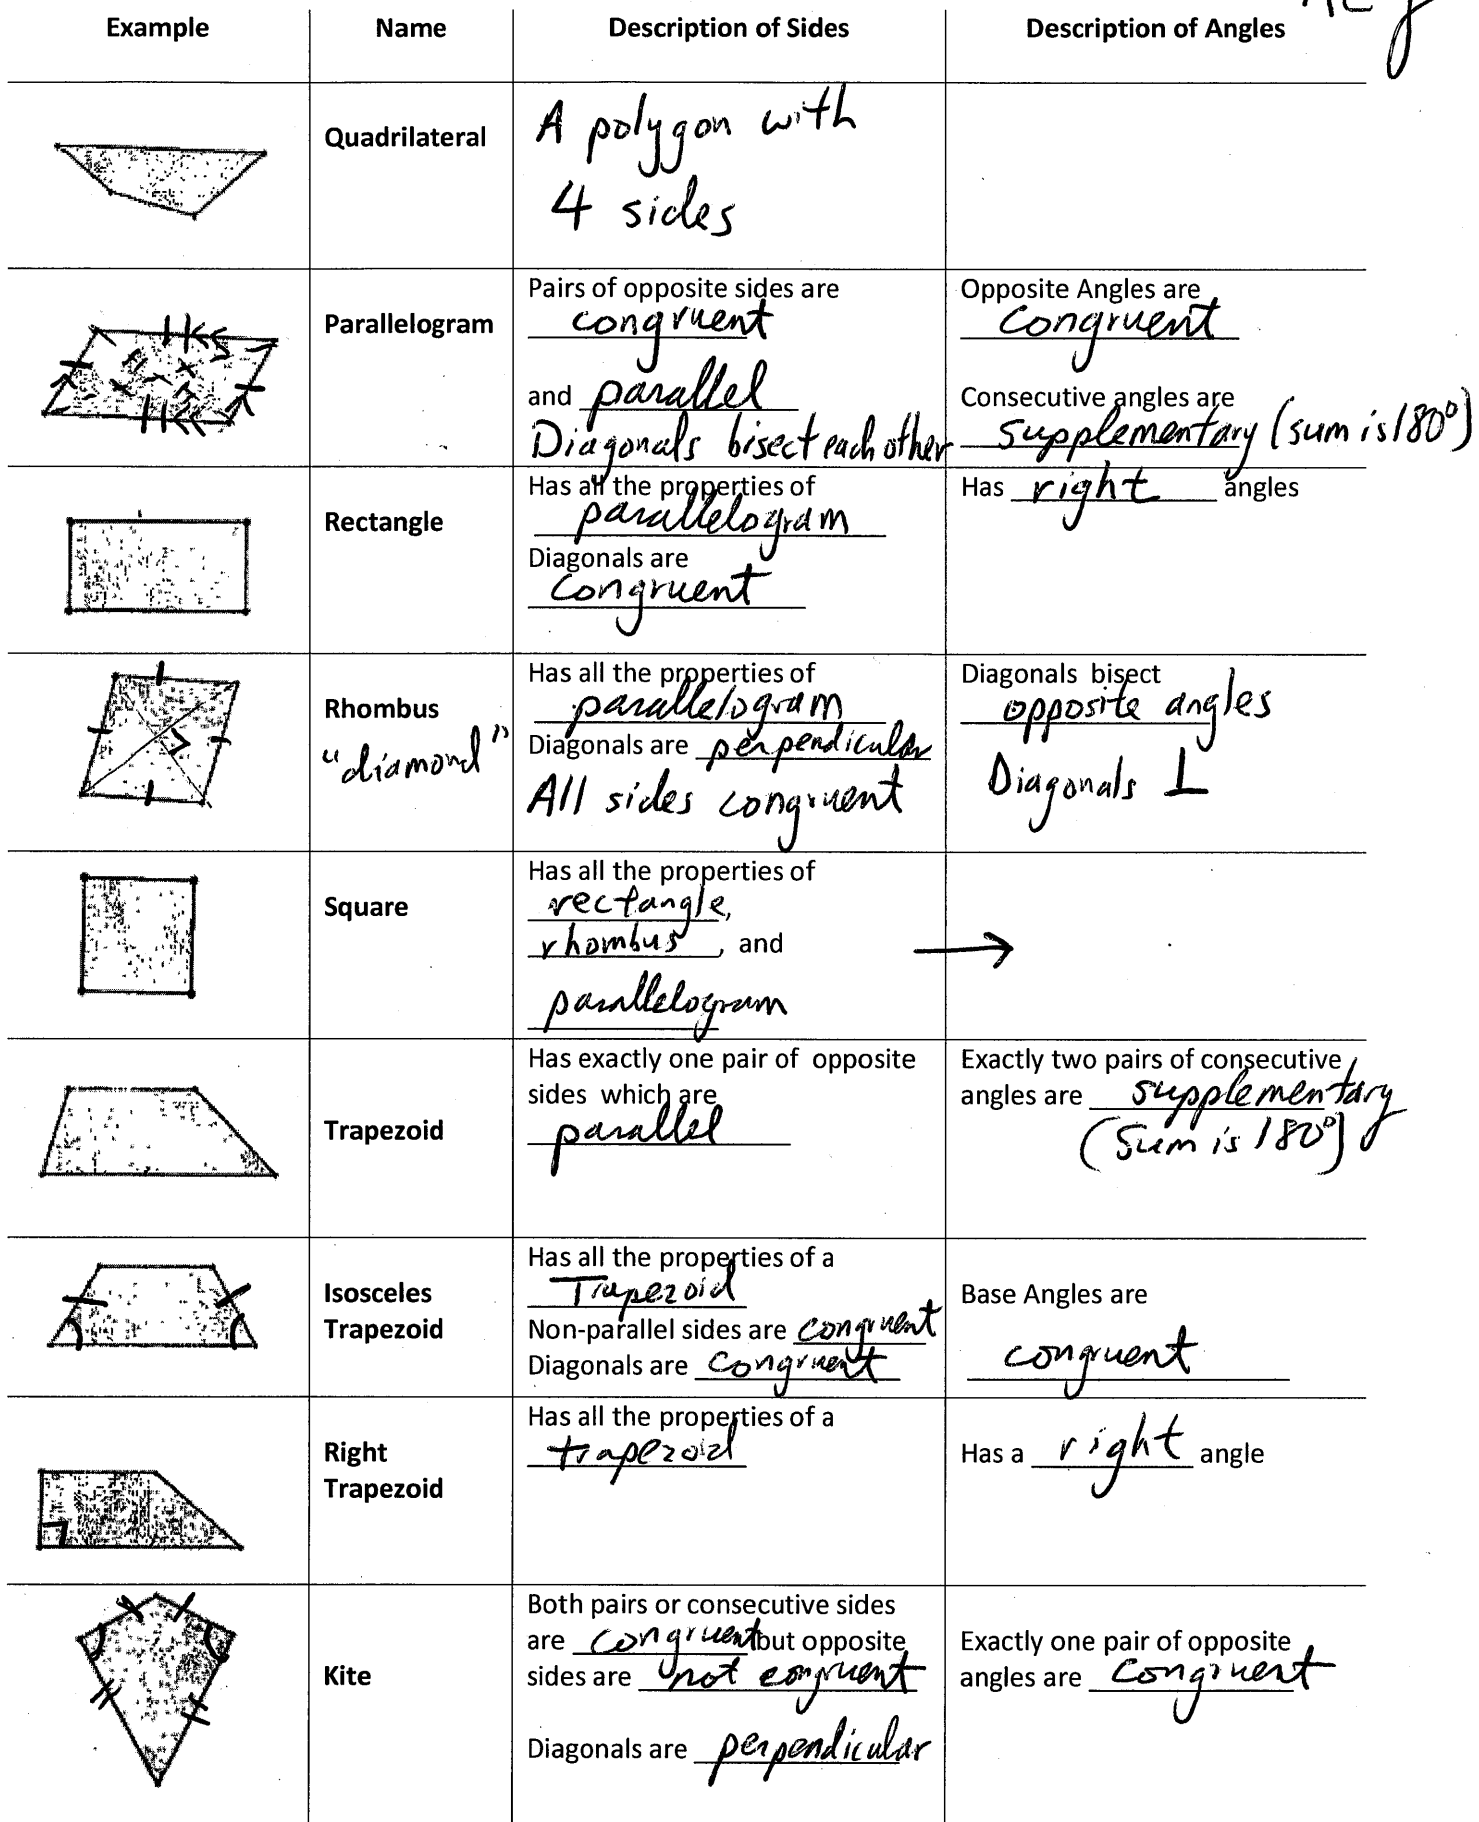 Key
Example Name Description of Sides Description of Angles
Quadrilateral
A polygon with
4 sides
Parallelogram
Pairs of opposite sides are
congruent
and parallel
Diagonals bisect each other
Opposite Angles are
congruent
Consecutive angles are
supplementary (sum is 180°)
Rectangle
Has all the properties of
parallelogram
Diagonals are
congruent
Has right angles
Rhombus
"diamond"
Has all the properties of
parallelogram
Diagonals are perpendicular
All sides congruent
Diagonals bisect
opposite angles
Diagonals ⊥
Square
Has all the properties of
rectangle,
rhombus, and
parallelogram
→
Trapezoid
Has exactly one pair of opposite
sides which are
parallel
Exactly two pairs of consecutive
angles are supplementary
(sum is 180°)
Isosceles
Trapezoid
Has all the properties of a
Trapezoid
Non-parallel sides are congruent
Diagonals are congruent
Base Angles are
congruent
Right
Trapezoid
Has all the properties of a
trapezoid
Has a right angle
Kite
Both pairs or consecutive sides
are congruent but opposite
sides are not congruent
Diagonals are perpendicular
Exactly one pair of opposite
angles are congruent